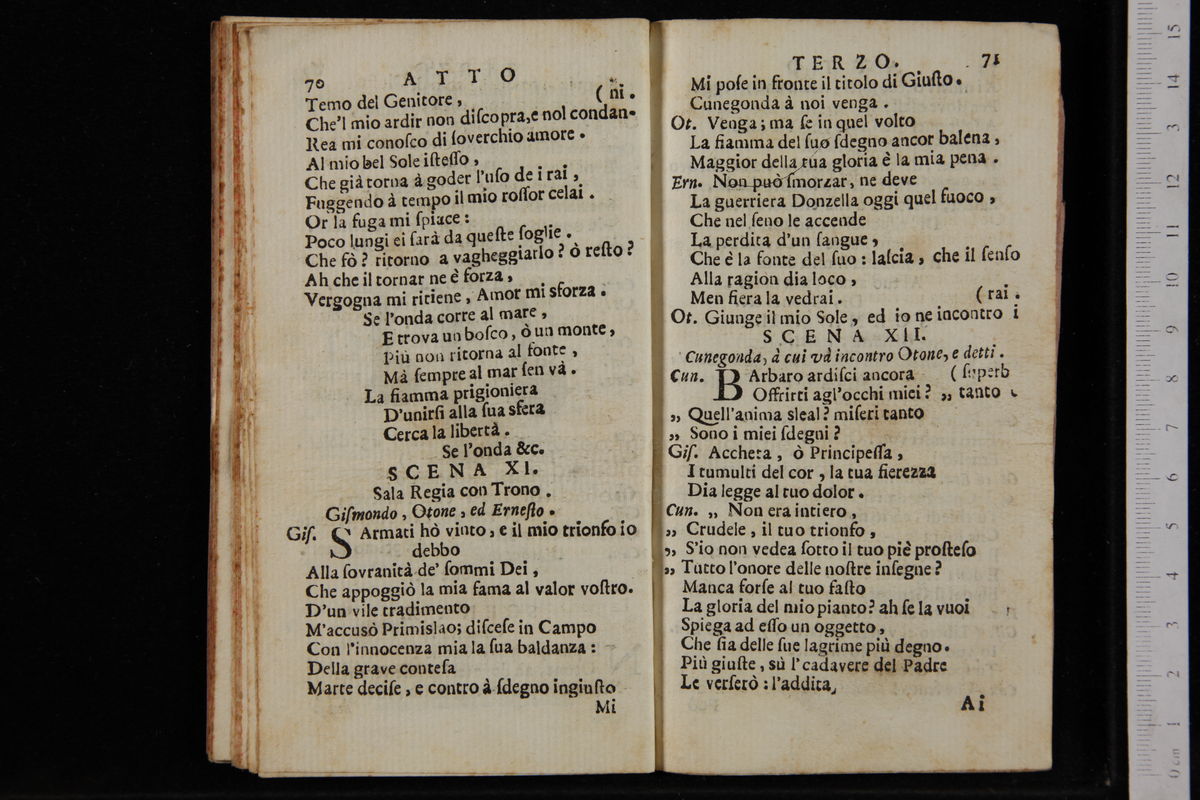 70 ATTO
Temo del Genitore, (ni.
Che'l mio ardir non diſcopra,e nol condan-
Rea mi conoſco di ſoverchio amore.
Al mio bel Sole iſteſſo,
Che già torna à goder l'uſo de i rai,
Fuggendo à tempo il mio roſſor celai.
Or la fuga mi ſpiace:
Poco lungi ei ſarà da queſte ſoglie.
Che fò? ritorno a vagheggiarlo? ò reſto?
Ah che il tornar ne è forza,
Vergogna mi ritiene, Amor mi sforza.
Se l'onda corre al mare,
E trova un boſco, ò un monte,
Più non ritorna al fonte,
Mà ſempre al mar ſen và.
La fiamma prigioniera
D'unirſi alla ſua sfera
Cerca la libertà.
Se l'onda &c.
SCENA XI.
Sala Regia con Trono.
Giſmondo, Otone, ed Erneſto.
Giſ. SArmati hò vinto, e il mio trionfo io
debbo
Alla ſovranità de' ſommi Dei,
Che appoggiò la mia fama al valor voſtro.
D'un vile tradimento
M'accusò Primislao; diſceſe in Campo
Con l'innocenza mia la ſua baldanza:
Della grave conteſa
Marte deciſe, e contro à ſdegno ingiuſto
Mi
TERZO. 71
Mi poſe in fronte il titolo di Giuſto.
Cunegonda à noi venga.
Ot. Venga; ma ſe in quel volto
La fiamma del ſuo ſdegno ancor balena,
Maggior della tua gloria è la mia pena.
Ern. Non può ſmorzar, ne deve
La guerriera Donzella oggi quel fuoco,
Che nel ſeno le accende
La perdita d'un ſangue,
Che è la fonte del ſuo: laſcia, che il ſenſo
Alla ragion dia loco,
Men fiera la vedrai. (rai.
Ot. Giunge il mio Sole, ed io ne incontro i
SCENA XII.
Cunegonda, à cui và incontro Otone, e detti.
Cun. BArbaro ardiſci ancora (ſuperb
Offrirti agl'occhi miei? „ tanto
„ Quell'anima sleal? miſeri tanto
„ Sono i miei ſdegni?
Giſ. Accheta, ò Principeſſa,
I tumulti del cor, la tua fierezza
Dia legge al tuo dolor.
Cun. „ Non era intiero,
„ Crudele, il tuo trionfo,
„ S'io non vedea ſotto il tuo piè proſteſo
„ Tutto l'onore delle noſtre inſegne?
Manca forſe al tuo faſto
La gloria del mio pianto? ah ſe la vuoi
Spiega ad eſſo un oggetto,
Che ſia delle ſue lagrime più degno.
Più giuſte, sù l'cadavere del Padre
Le verſerò: l'addita,
Ai